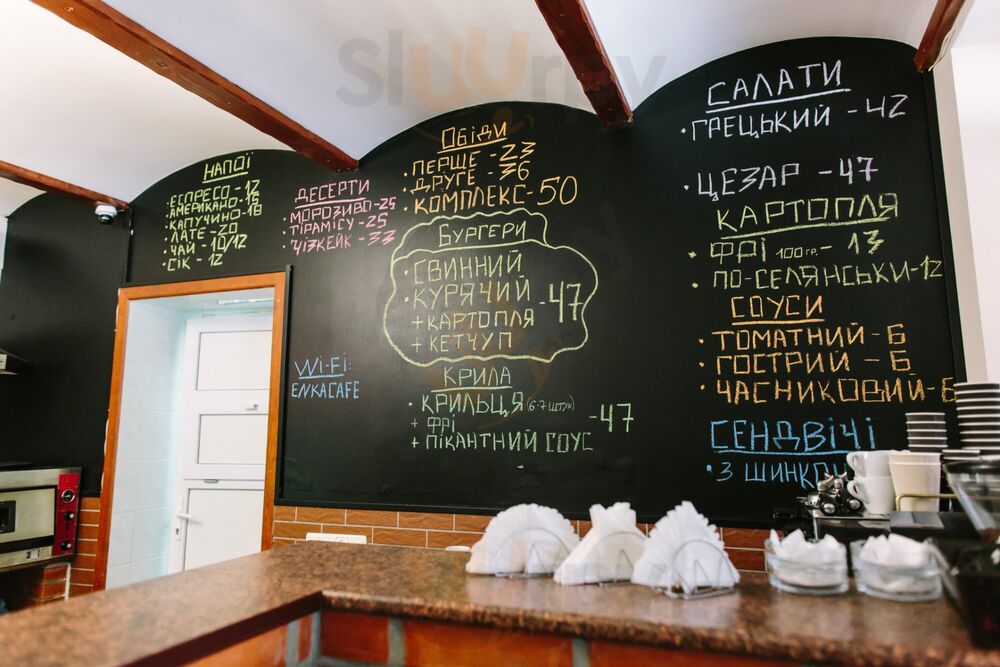 НАПОЇ
·ЕСПРЕСО-12
·АМЕРИКАНО-15
·КАПУЧИНО-18
·ЛАТЕ-20
·ЧАЙ-10/12
·СІК-12
ДЕСЕРТИ
·МОРОЗИВО-25
·ТІРАМІСУ-25
·ЧІЗКЕЙК-33
Wi-Fi:
ENKACAFE
ОБІДИ
·ПЕРШЕ-23
·ДРУГЕ-36
·КОМПЛЕКС-50
БУРГЕРИ
·СВИННИЙ
·КУРЯЧИЙ
+КАРТОПЛЯ
+КЕТЧУП
-47
КРИЛА
·КРИЛЬЦЯ (6-7 ШТУК)
+ ФРІ
+ ПІКАНТНИЙ СОУС
-47
САЛАТИ
·ГРЕЦЬКИЙ-42
·ЦЕЗАР-47
КАРТОПЛЯ
·ФРІ 100 ГР.-13
·ПО-СЕЛЯНСЬКИ-12
СОУСИ
·ТОМАТНИЙ-6
·ГОСТРИЙ-6
·ЧАСНИКОВИЙ-6
СЕНДВІЧІ
·З ШИНКО